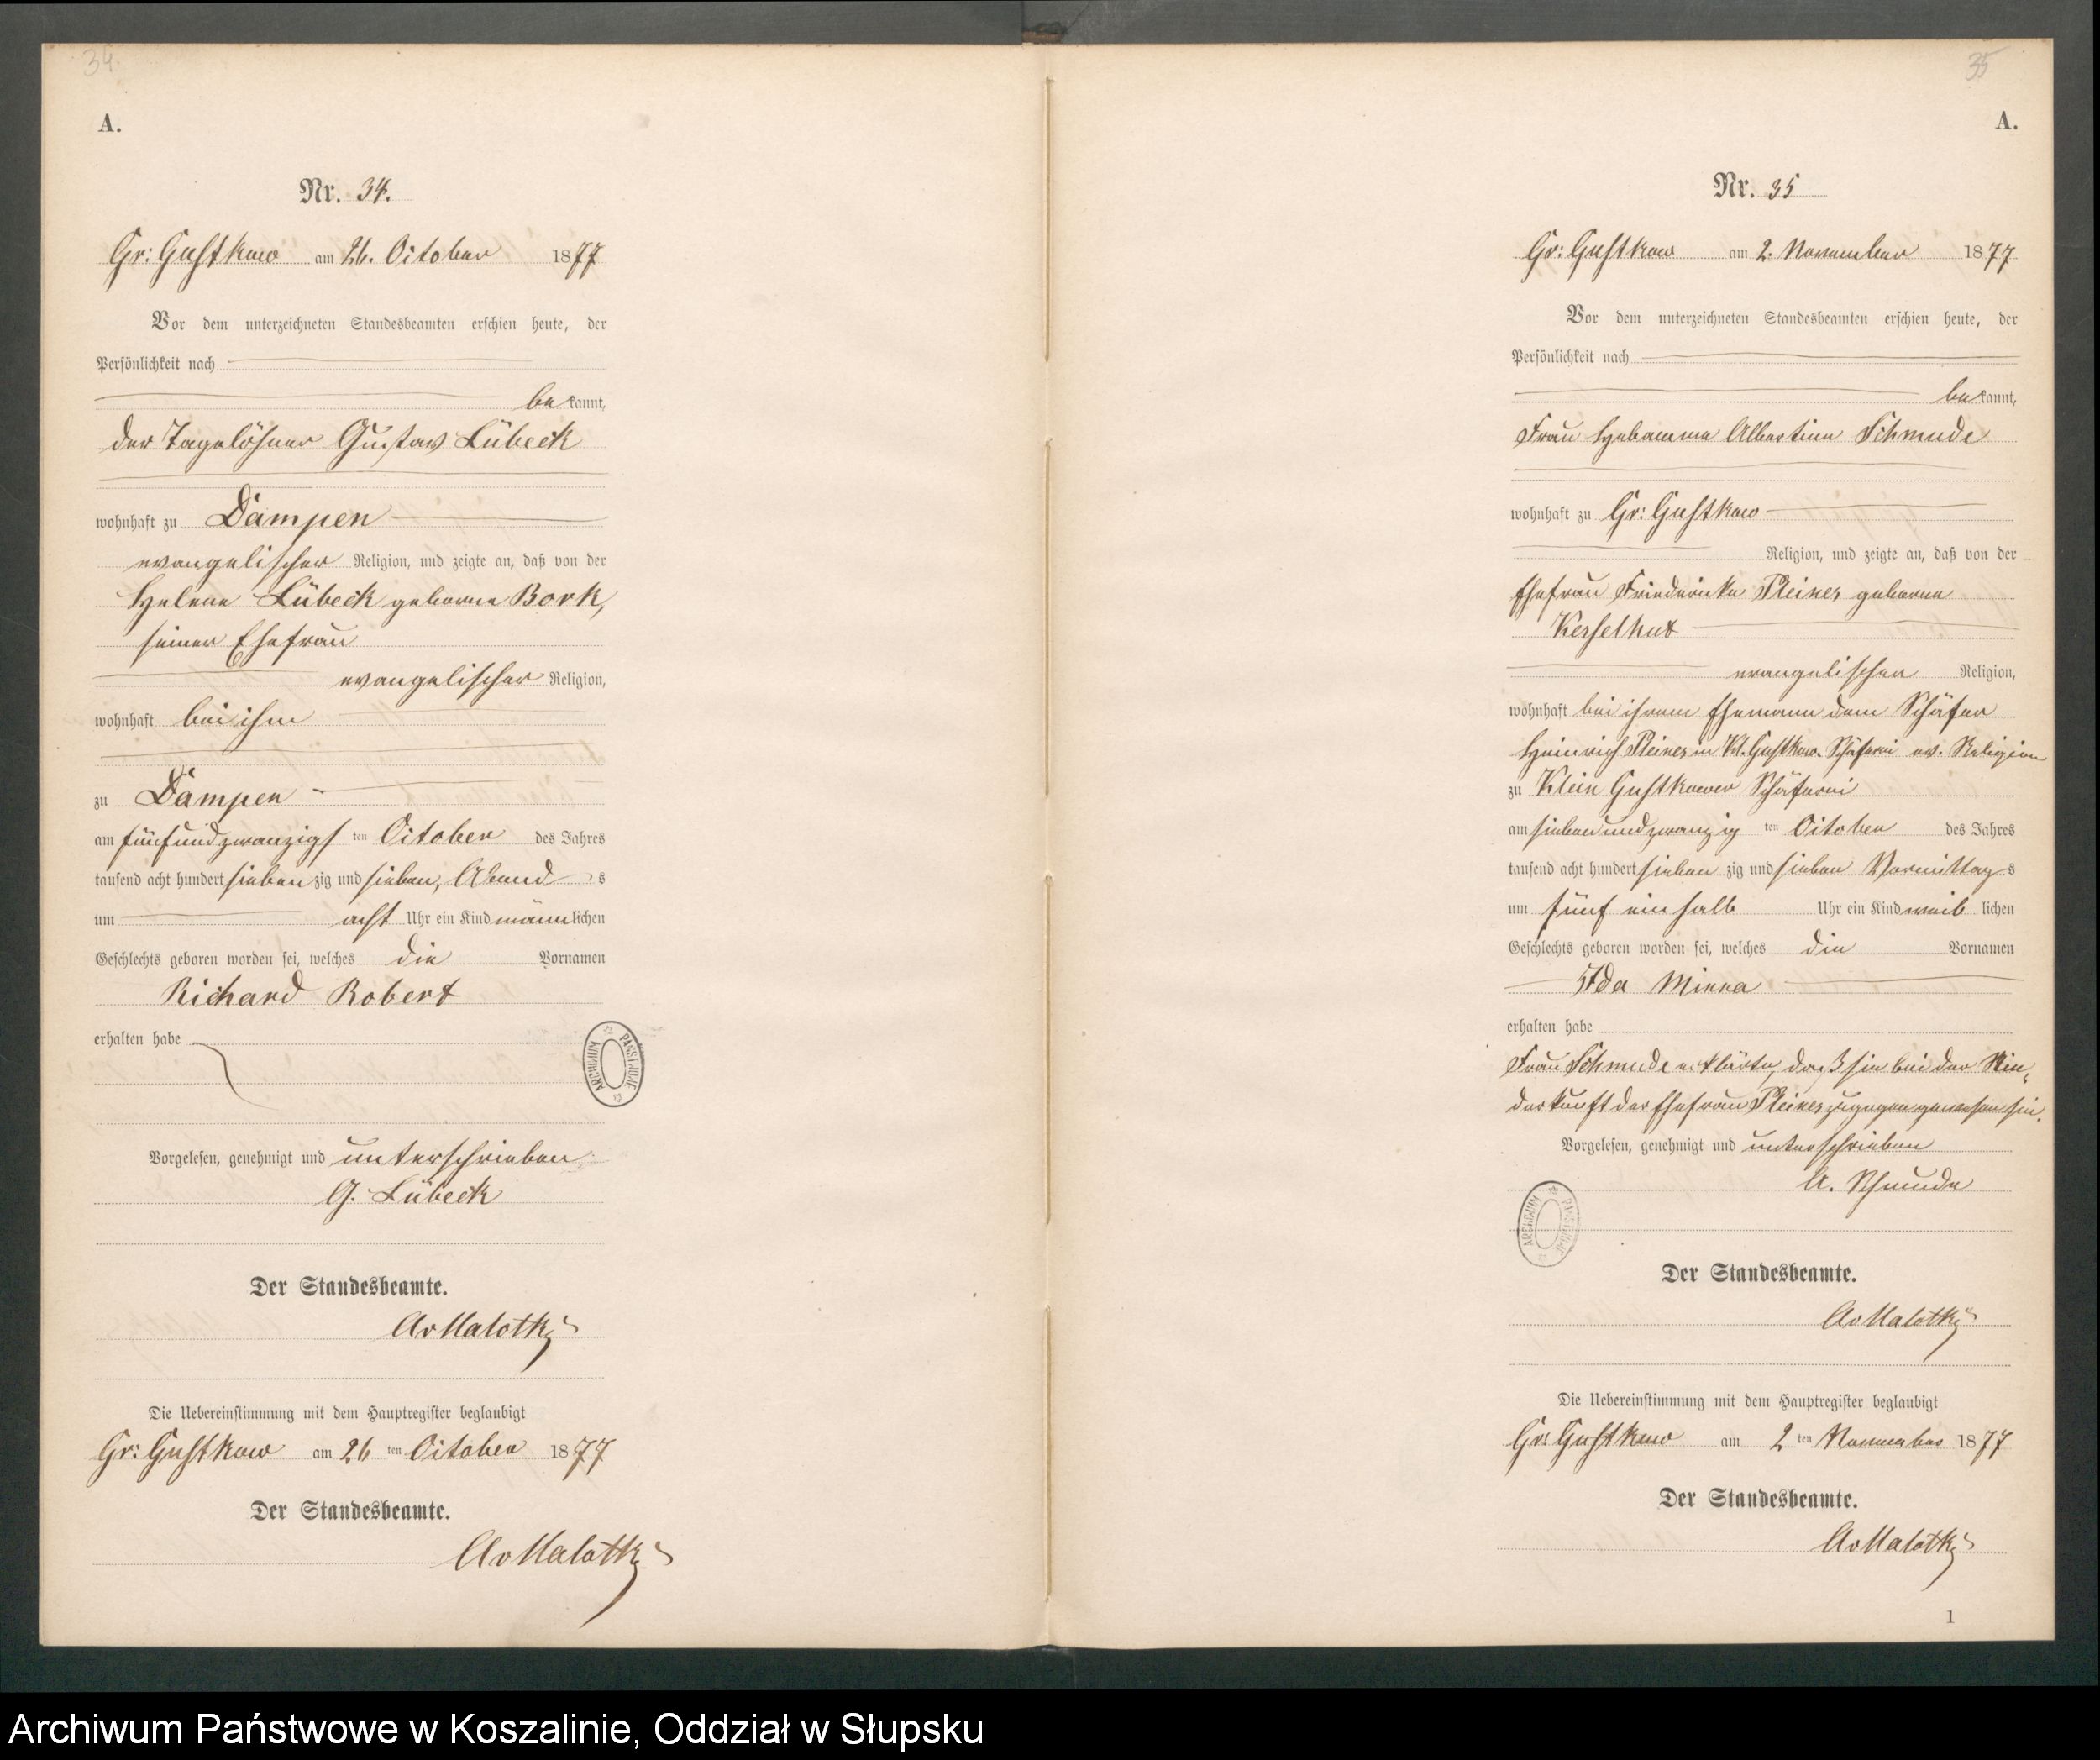 34.
A.
Nr. 34.
Gr: Gustkow am 26. October 1877
Vor dem unterzeichneten Standesbeamten erschien heute, der
Persönlichkeit nach
bekannt,
der Tagelöhner Gustav Lübeck
wohnhaft zu Dampen
evangelischer Religion, und zeigte an, daß von der
Helene Lübeck geborne Bork,
seiner Ehefrau
evangelischer Religion,
wohnhaft bei ihm
zu Dampen
am fünfundzwanzigsten October des Jahres
tausend acht hundert siebenzig und sieben, Abends
um acht Uhr ein Kind männlichen
Geschlechts geboren worden sei, welches die Vornamen
Richard Robert
erhalten habe
ARCHIWUM PAŃSTWOWE
Vorgelesen, genehmigt und unterschrieben
G. Lübeck
Der Standesbeamte.
AvMalotky
Die Uebereinstimmung mit dem Hauptregister beglaubigt
Gr: Gustkow am 26 ten October 1877
Der Standesbeamte.
AvMalotky
35
A.
Nr. 35
Gr: Gustkow am 2. November 1877
Vor dem unterzeichneten Standesbeamten erschien heute, der
Persönlichkeit nach
bekannt,
Frau Hebamme Albertine Schmude
wohnhaft zu Gr: Gustkow
Religion, und zeigte an, daß von der
Ehefrau Friederike geborne
Kesselhut
evangelischen Religion,
wohnhaft bei ihrem Ehemann dem Schäfer
Heinrich in Kl. Gustkow. Schäferei ev. Religion
zu Klein Gustkower Schäferei
am siebenundzwanzig ten October des Jahres
tausend acht hundert sieben zig und sieben Vormittags
um fünf ein halb Uhr ein Kind weib lichen
Geschlechts geboren worden sei, welches die Vornamen
Ida Minna
erhalten habe
Frau Schmude erklärte, daß sie bei der Nie-
derkunft der Ehefrau zugegen gewesen sei.
Vorgelesen, genehmigt und unterschrieben
A. Schmude
ARCHIWUM PAŃSTWOWE
Der Standesbeamte.
AvMalotky
Die Uebereinstimmung mit dem Hauptregister beglaubigt
Gr: Gustkow am 2 ten November 1877
Der Standesbeamte.
AvMalotky
1
Archiwum Państwowe w Koszalinie, Oddział w Słupsku